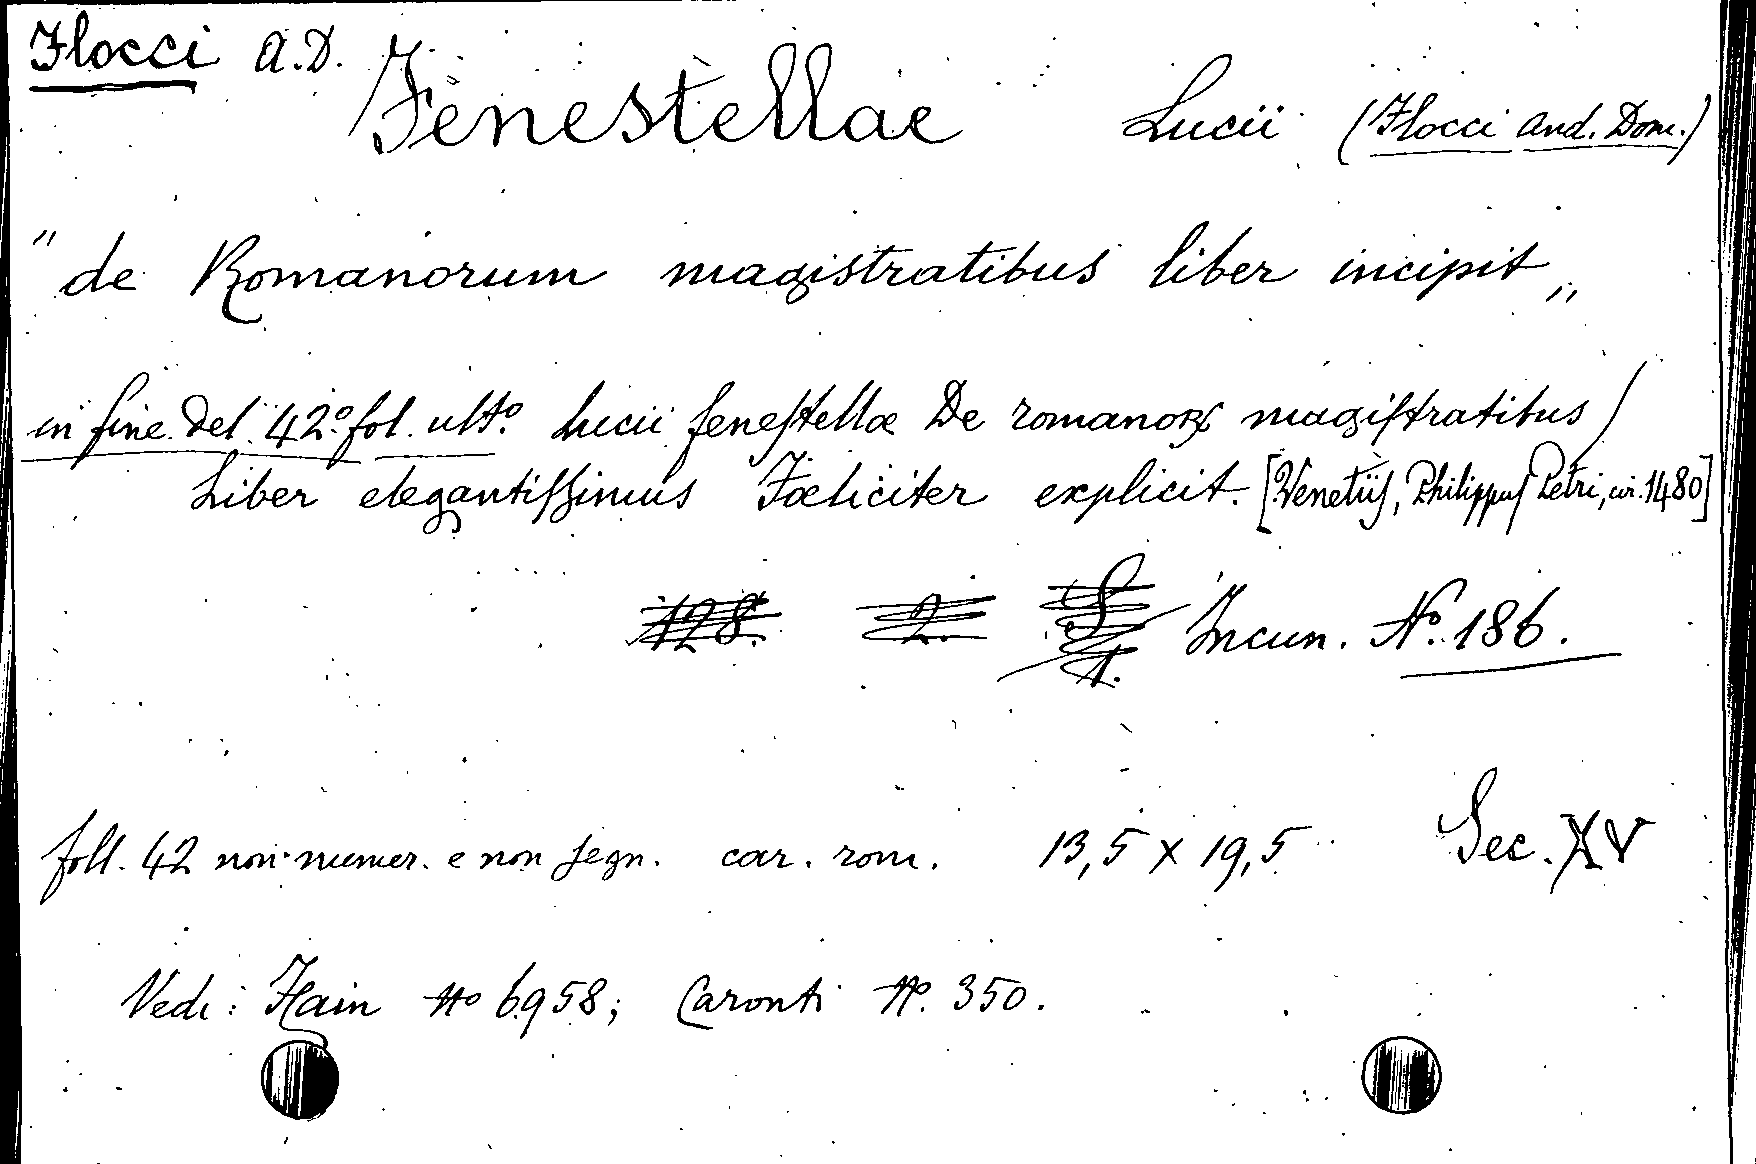 Flocci A.D.
Fenestellae Lucii (Flocci And. Dom.)
"de Romanorum magistratibus liber incipit„
in fine del 42º fol. ultº Lucii feneſtellæ De romanoꝝ magiſtratibus/
Liber elegantiſſimus Fœliciter explicit. [Venetiiſ, Philippuſ Petri, cir. 1480]
128. 2. Incun. Nº 186.
foll. 42 non numer. e non segn. car. rom. 13,5 x 19,5 Sec. XV
Vedi: Hain Nº 6958; Caronti Nº 350.